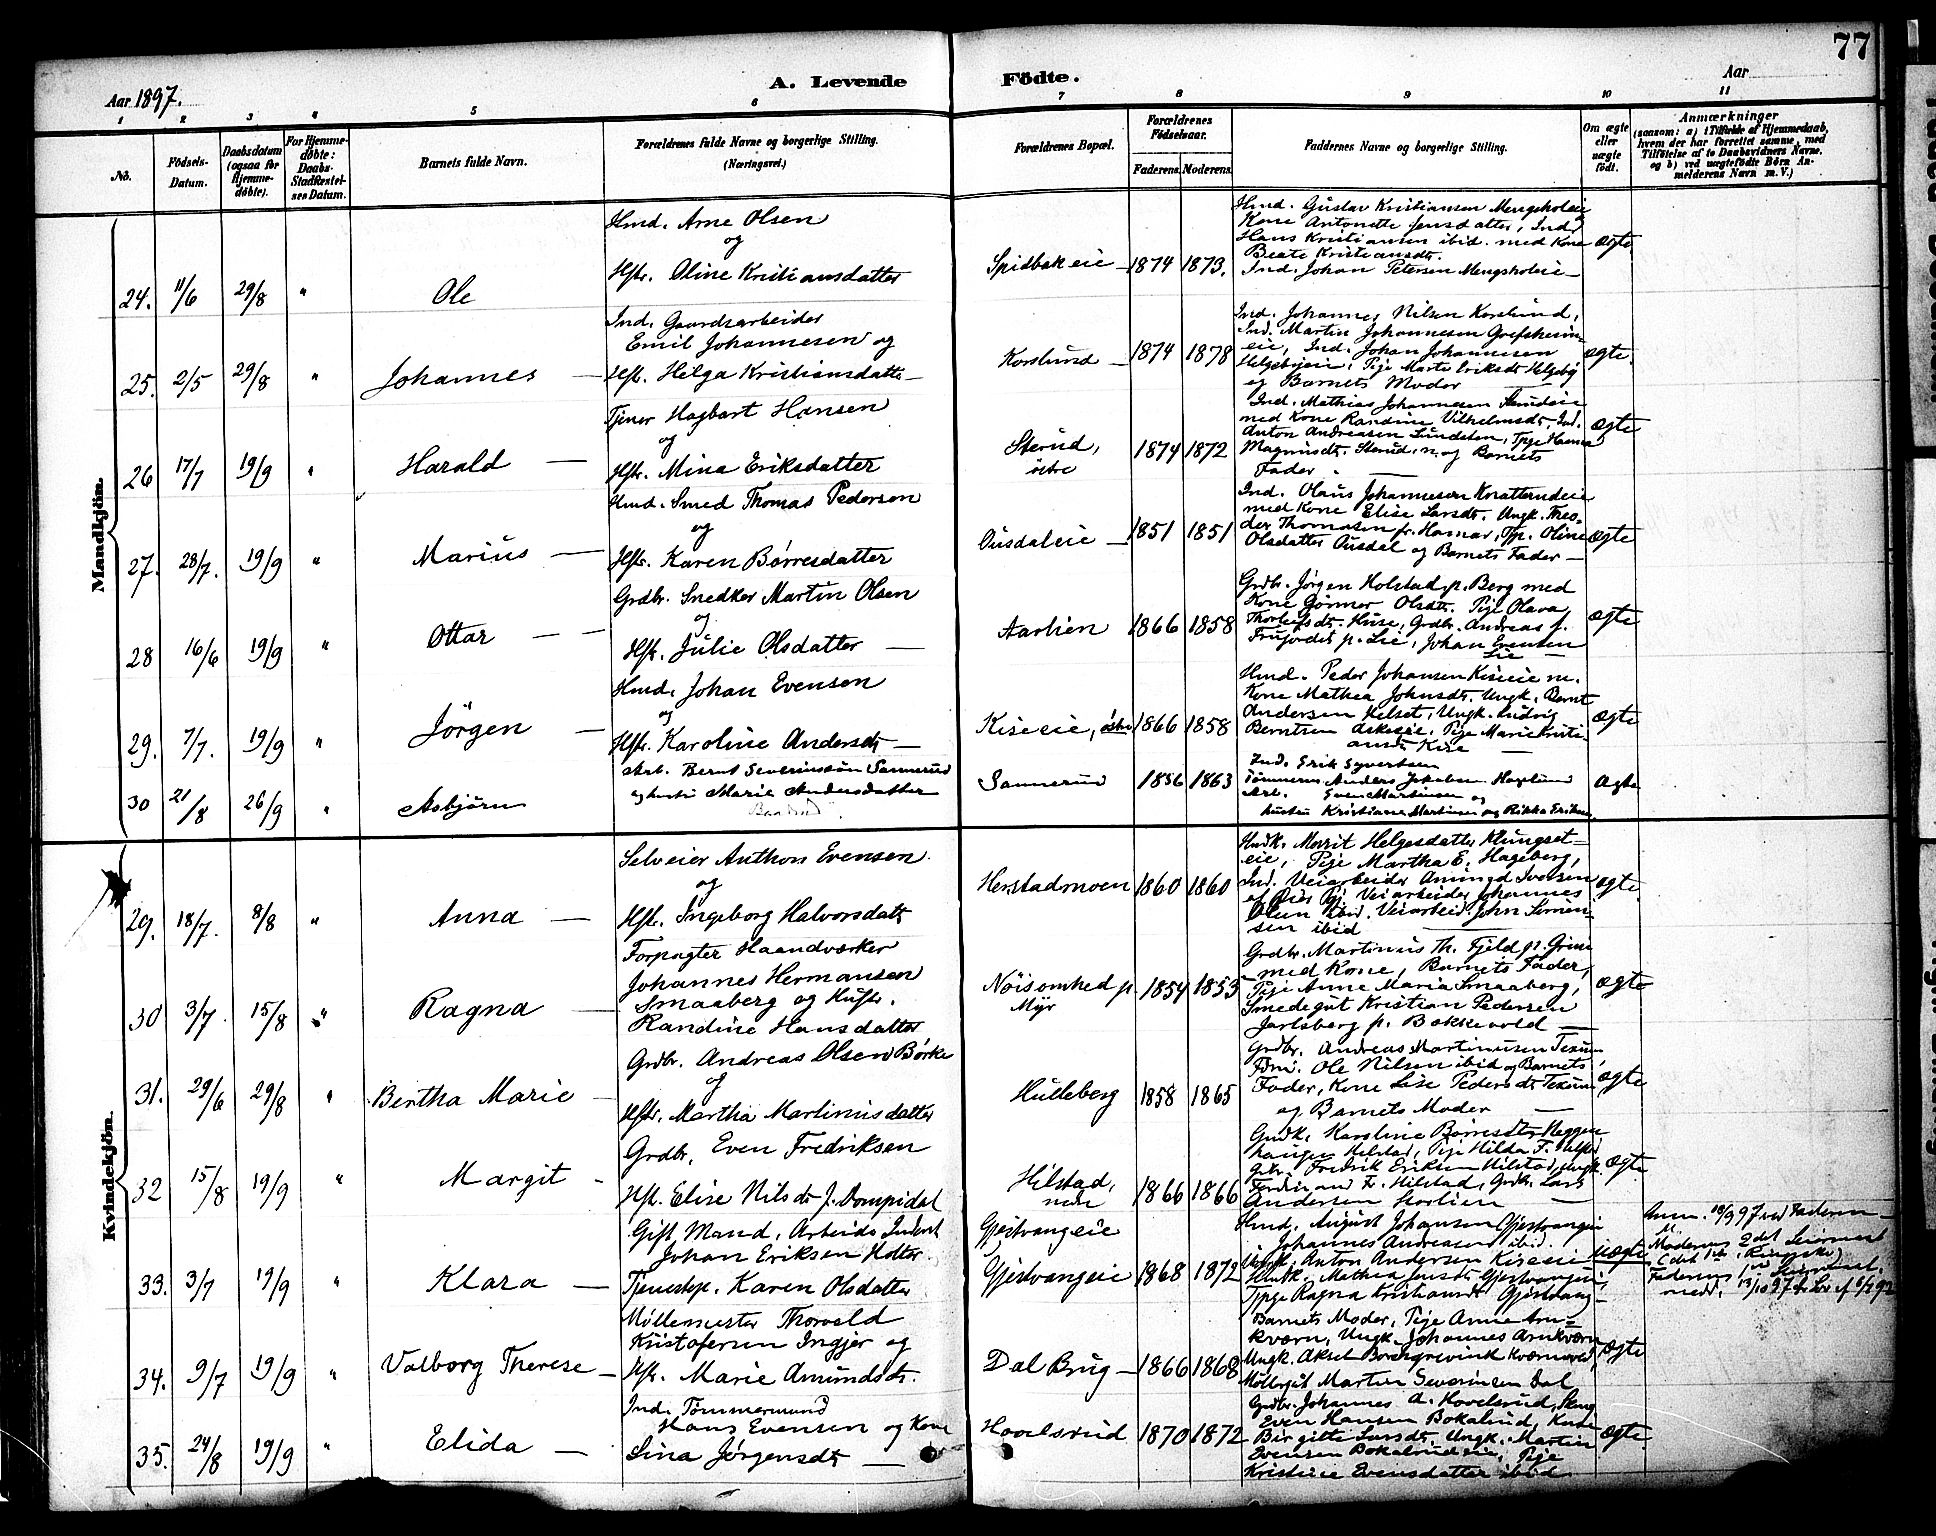 77
Aar 1897.
A. Levende Födte.
Aar
1 2 3 4 5 6 7 8 9 10 11
No.
Födsels-Datum.
Daabsdatum (ogsaa for Hjemme-døbte).
For Hjemme-døbte: Daabs-Stadfæstel-ses Datum.
Barnets fulde Navn.
Forældrenes fulde Navne og borgerlige Stilling. (Næringsvei.)
Forældrenes Bopæl.
Forældrenes Födselsaar.
Faderens. Moderens.
Faddernes Navne og borgerlige Stilling.
Om ægte eller uægte födt.
Anmærkninger
(saasom: a) i Tilfælde af Hjemmedaab,
hvem der har forrettet samme, med
Tilföielse af to Daabsvidners Navne,
og b) ved uægtefödte Börn An-
melderens Navn m. V.)
Mandkjön.
24. 11/6 29/8 " Ole
Hmd. Arne Olsen
og
Hstr. Oline Kristiansdatter
Spidbakeie 1874 1873.
Hmd. Gustav Kristiansen Mengsholeie
Kone Antonette Jensdatter, Ind.
Hans Kristiansen ibid. med Kone
Beate Kristiansdt.
Ind. Johan Petersen Mengsholeie
ægte
25. 2/5 29/8 " Johannes
Ind. Gaardsarbeider
Emil Johannesen og
Hst. Helga Kristiansdatter
Korslund 1874 1878
Ind. Johannes Nilsen Korslund,
Ind. Martin Johannesen
eie, Ind. Johan Johannesen
Helgebyeie, Pige Marte Eriksdt Helgeby
og Barnets Moder
ægte.
26 17/7 19/9 " Harald
Tjener Hagbart Hansen
og
Hstr. Mina Eriksdatter
Sterud, östre 1874 1872
Ind. Mathias Johannesen
med Kone Randine Vilhelmsdt. Ind.
Anton Andreasen
Magnusdt. Sterud, n. og Barnets
Fader
ægte
27. 28/7. 19/9 " Marius
Hmd. Smed Thomas Pedersen
og
Hstr. Karen Börresdatter
Ousdaleie 1851 1851
Ind. Olaus Johannesen
med Kone Elise Larsdt. Ungk. Theo-
dor Thomasen fr. Hamar, Tp. Oline
Olsdatter Ousdal og Barnets Fader
ægte
28 16/6 19/9 " Ottar
Grdbr. Snedker Martin Olsen
og
Hstr. Julie Olsdatter
Aarlien 1866 1858
Grdbr. Jörgen Holstad p. Berg med
Kone Olsdtr. Pige Olava
Huse, Grdbr. Andreas
p. Lie, Johan Evensen
Lie
ægte
29. 7/7. 19/9 " Jörgen
Hmd. Johan Evensen
og
Hstr. Karoline Andersdt
Kiseeie, östre 1866 1858
Hmd. Peder Johansen Kiseeie m.
Kone Mathea Johnsdt. Ungk. Bernt
Andersen Helset, Ungk. Ludvig
Berntsen, Pige Marie Kristi-
ansdt. Kise
ægte
30 21/8 26/9 " Asbjörn
Arb. Bernt Severinssön Sannerud
og hustru Marie Andersdatter
Sannerud 1856 1863
Ind. Erik Syvertsen
Tömmerm. Anders Jakobsen Haglund
Arb. Even Martinsen og
hustru Kristiane Martinsen og Rikka Eriksen
ægte
Kvindekjön.
29. 18/7. 8/8 " Anna
Selveier Anthon Evensen
og
Hstr. Ingeborg Halvorsdatt
Herstadmoen 1860 1860
Marit Helgesdatter Klungset-
eie, Pige Martha E. Hageberg,
Ind. Veiarbeider Amund Iversen
Veiarbeider Johannes
Olsen ibid. Veiarbeid. John Simen-
sen ibid
ægte
30 3/7. 15/8 " Ragna
Forpagter Haandværker
Johannes Hermansen
Smaaberg og Hustr.
Randine Hansdatter
Nöisomhed p. Myr 1854 1853
Grdbr. Martinius Th. Fjeld p. Grime
med Kone, Barnets Fader,
Pige Anne Maria Smaaberg,
Smedegut Kristian Pedersen
Jarlsberg p. Bækkevold
ægte
31. 29/6 29/8 " Bertha Marie
Grdbr. Andreas Olsen Börke
og
Hstr. Martha Martinusdatter
Hulleberg 1858 1865
Grdbr. Andreas Martinusen Texum
Ole Nilsen ibid og Barnets
Fader, Kone Lise Pedersdt Texum
og Barnets Moder
ægte
32 15/8 19/9 " Margit
Grdbr. Even Fredriksen
Hst. Elise Nilsdt f. Dompidal
Hilstad, nedre 1866 1866
Karoline Börresdtr
Hilstad, Pige Hilda F. Hilstad
Fredrik Eriksen Hilstad, Ungk.
Ferdinand F. Hilstad, Grdbr. Lars
Andersen Storlien
ægte
33. 3/7 19/9 " Klara
Gift Mand, Arbeids Inderst
Johan Eriksen Holter.
Tjenestep. Karen Olsdatter
Gjestvangeie
Gjestvangeie 1868 1872
Hmd. August Johansen Gjestvangeie
Johannes Andreasen ibid.
Anton Andersen Kiseeie
Mathea Jensdt. Gjestvangeie,
Tpige Ragna Kristiansdt. Gjestvang-
uægte
Anm. 18/9 97 ved Faderen
Moderens 2det Leiermaal
Faderens
34. 9/7 19/9 " Valborg Therese
Möllemester Thorvald
Kristofersen Ingjer og
Hstr. Marie Amundsdt.
Dal Brug 1866 1868
Barnets Moder, Pige Anne Arn-
kværn, Ungk. Johannes Arnkværn
Ungk. Aksel Borchgrevink Kværnved,
Möllegut Martin Severinsen Dal
ægte
35. 24/8 19/9 " Elida
Ind. Tömmermand
Hans Evensen og Kone
Lina Jörgensdt
Hovelsrud 1870 1872
Grdbr. Johannes A. Hovelsrud,
Even Hansen Bokalrud, Kone
Birgitte Larsdt. Ungk. Martin
Evensen Bokalrudeie, Pige
Kristine Evensdatter ibid
ægte